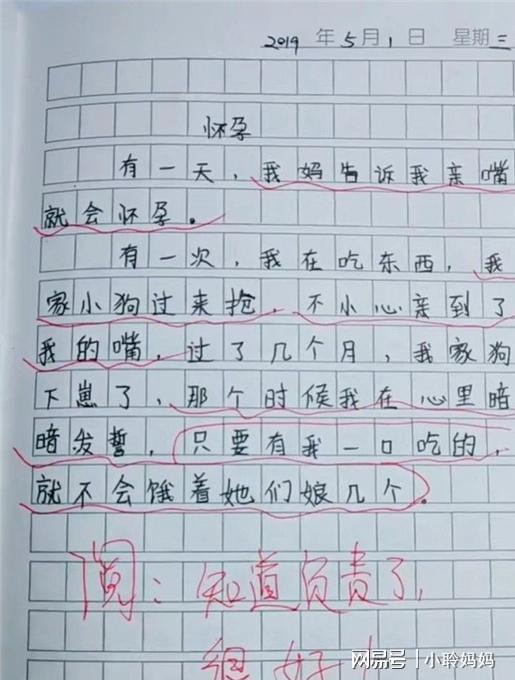 2019 年 5 月 1 日 星期三
怀孕
有一天，我妈告诉我亲嘴
就会怀孕。
有一次，我在吃东西，我
家小狗过来抢，不小心亲到了
我的嘴，过了几个月，我家狗
下崽了，那个时候我在心里暗
暗发誓，只要有我一口吃的，
就不会饿着她们娘几个。
阅：知道负责了，
很好！
网易号 / 小聆妈妈